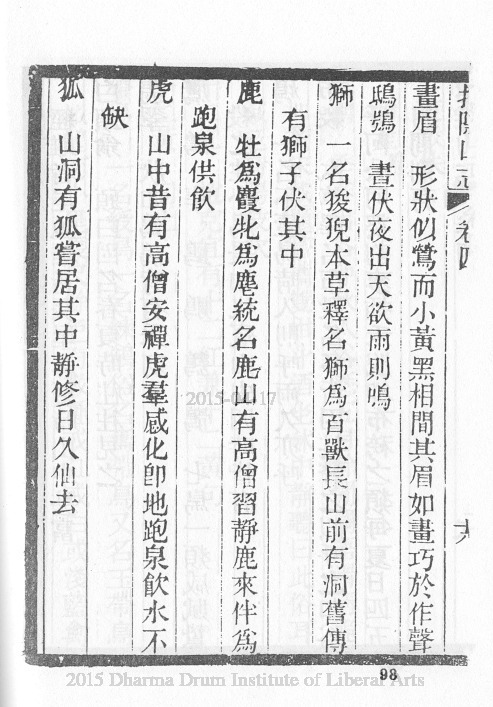 畫眉 形狀似鶯而小黃黑相間其眉如畫巧於作聲
鴟鴞 晝伏夜出天欲雨則鳴
獅 一名狻猊本草釋名獅爲百獸長山前有洞舊傳
有獅子伏其中
鹿 牡爲麚牝爲麀統名鹿山有高僧習靜鹿來伴爲
跑泉供飲
虎 山中昔有高僧安禪虎羣感化卽地跑泉飲水不
缺
狐 山洞有狐嘗居其中靜修日久仙去
卷四
98
2015-04-17
2015 Dharma Drum Institute of Liberal Arts